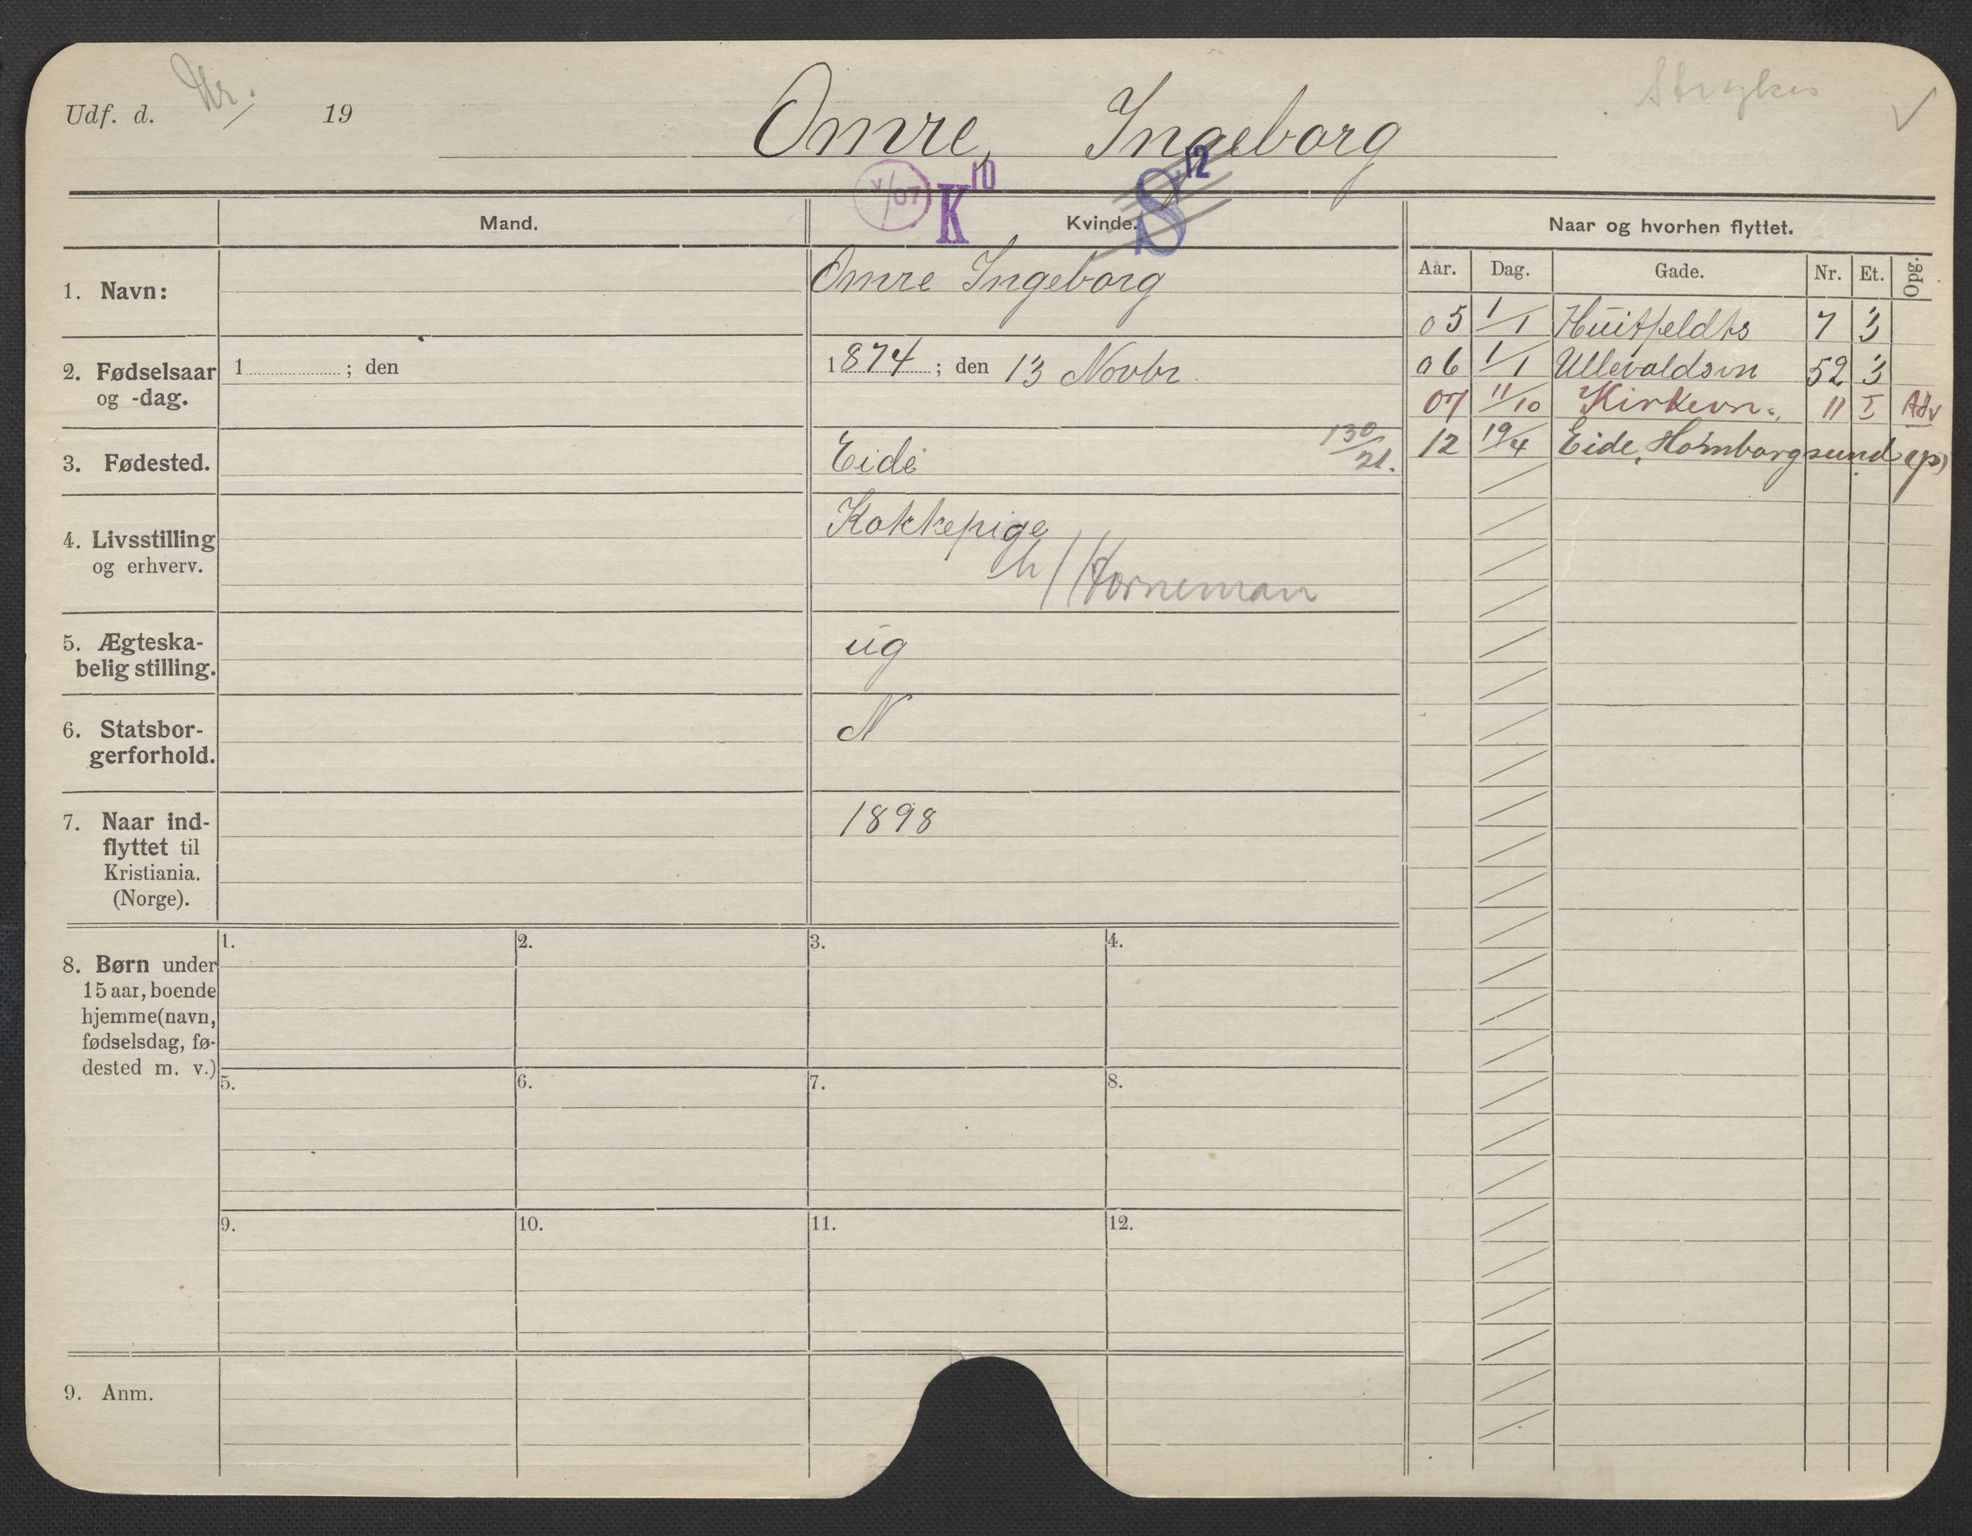 Udf. d. / 19
Omre, Ingeborg
Strykes
K 10
S 12
Mand.
Kvinde.
Naar og hvorhen flyttet.
Aar. Dag. Gade. Nr. Et. Opg.
1. Navn:
Omre Ingeborg
05 1/1 Huitfeldts 7 3
2. Fødselsaar
og -dag.
1 ; den
1874 ; den 13 Novbr.
06 1/1 Ullevoldsvn 52 3
07 11/10 Kirkevn. 11 I Adv
3. Fødested.
Eide
130/21.
12 19/4 Eide, Homborgsund (p)
4. Livsstilling
og erhverv.
Kokkepige
h/ Horneman
5. Ægteska-
belig stilling.
ug
6. Statsbor-
gerforhold.
N
7. Naar ind-
flyttet til
Kristiania.
(Norge).
1898
8. Børn under
15 aar, boende
hjemme (navn,
fødselsdag, fø-
dested m. v.)
1. 2. 3. 4.
5. 6. 7. 8.
9. 10. 11. 12.
9. Anm.